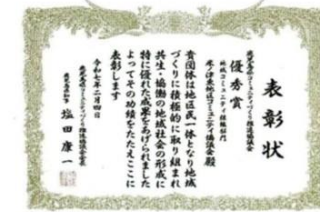 表彰状
優秀賞
地域コミュニティ部門
米ノ津東地区コミュニティ協議会殿
貴団体は地区民一体となり地域
づくりに積極的に取り組まれ
共生・協働の地域社会の形成に
特に優れた成果をあげられました
よってその功績をたたえここに
表彰します
令和七年二月四日
塩田康一